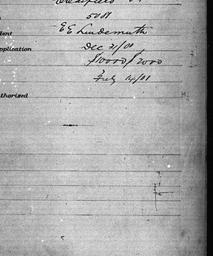 5081
dent
E E Lindemuth
pplication
Dec 21/01
$10000 / 2000
July 14/01
thorized